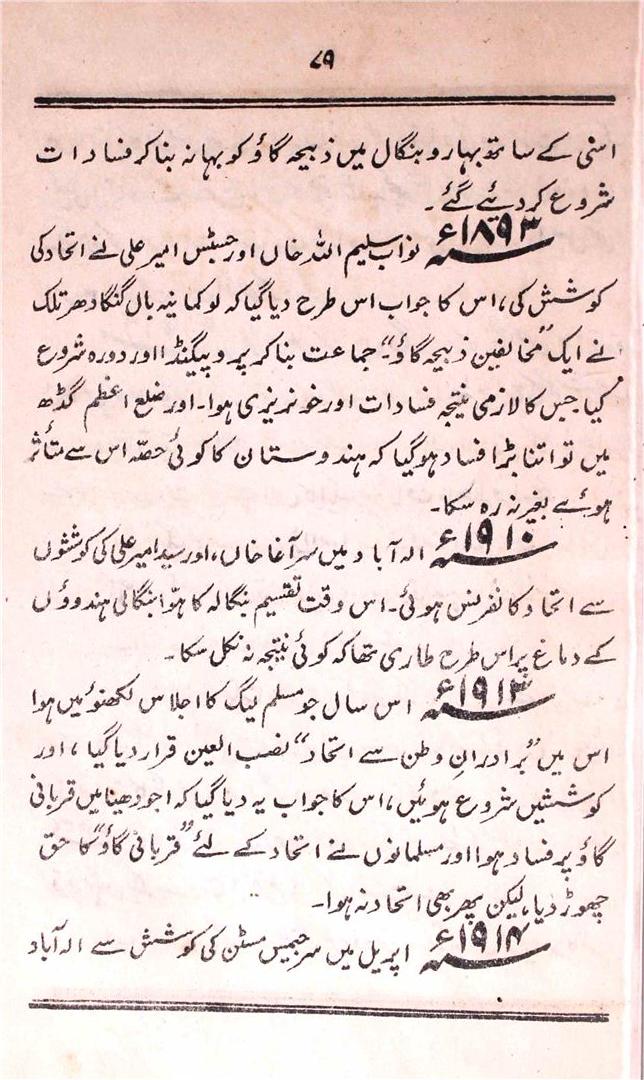 ۷۹
اسی کے ساتھ بہار و بنگال میں ذبیحہ گاؤ کو بہانہ بنا کر فسادات
شروع کر دیئے گئے۔
۱۸۹۳ء نواب سلیم اللہ خاں اور جسٹس امیر علی نے اتحاد کی
کوشش کی، اس کا جواب اس طرح دیا گیا کہ لوکمانیہ بال گنگا دھر تلک
نے ایک ”مخالفین ذبیحہ گاؤ“ جماعت بنا کر پروپیگنڈا اور دورہ شروع
کیا جس کا لازمی نتیجہ فسادات اور خونریزی ہوا۔ اور ضلع اعظم گڈھ
میں تو اتنا بڑا فساد ہو گیا کہ ہندوستان کا کوئی حصّہ اس سے متأثر
ہوئے بغیر نہ رہ سکا۔
۱۹۱۰ء الہ آباد میں سر آغا خاں، اور سید امیر علی کی کوششوں
سے اتحاد کانفرنس ہوئی۔ اس وقت تقسیم بنگالہ کا ہوّا بنگالی ہندوؤں
کے دماغ پر اس طرح طاری تھا کہ کوئی نتیجہ نہ نکل سکا۔
۱۹۱۳ء اس سال جو مسلم لیگ کا اجلاس لکھنؤ میں ہوا
اس میں ”برادرانِ وطن سے اتحاد“ نصب العین قرار دیا گیا، اور
کوششیں شروع ہوئیں، اس کا جواب یہ دیا گیا کہ اجودھیا میں قربانی
گاؤ پر فساد ہوا اور مسلمانوں نے اتحاد کے لئے ”قربانی گاؤ“ کا حق
چھوڑ دیا، لیکن پھر بھی اتحاد نہ ہوا۔
۱۹۱۴ء اپریل میں سر جیمس مسٹن کی کوشش سے الہ آباد